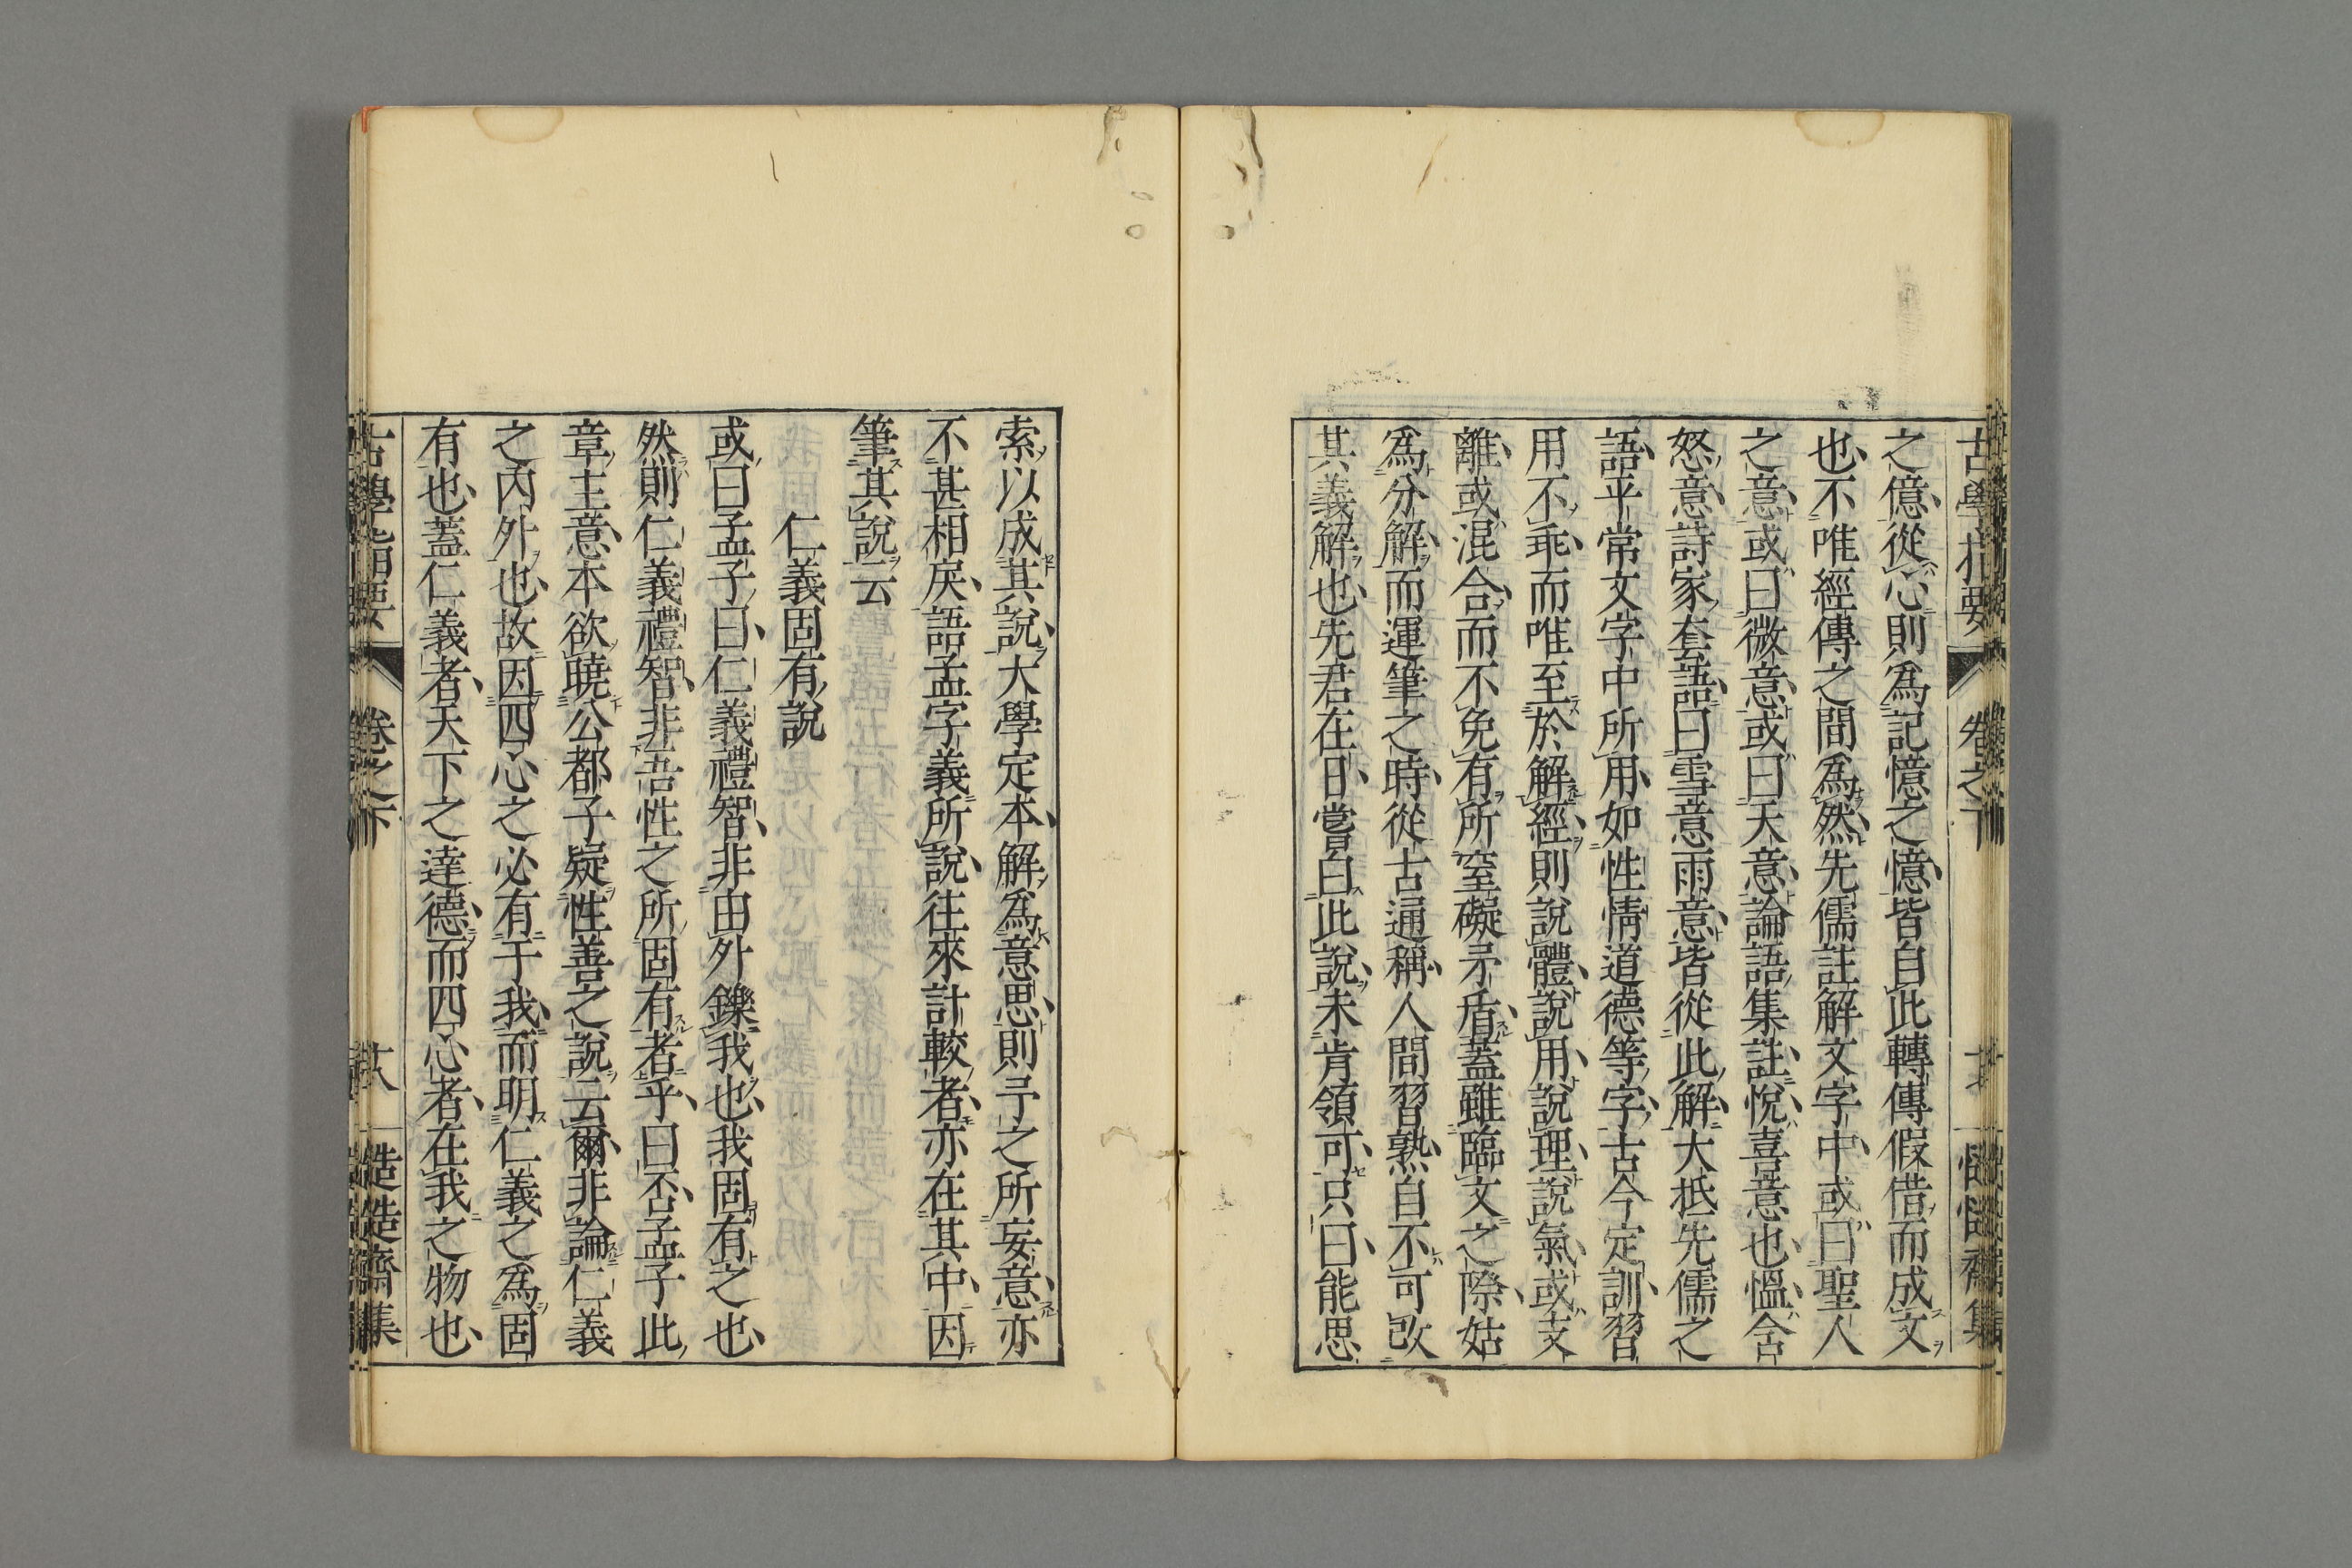 古學指要
卷之下
之億從心則爲記憶之憶皆自此轉傳假借而成文
也不唯經傳之間爲然先儒註解文字中或曰聖人
之意或曰微意或曰天意論語集註悅喜意也慍含
怒意詩家套語曰雪意雨意皆從此解大抵先儒之
語平常文字中所用如性情道德等字古今定訓習
用不乖而唯至於解經則說體說用說理說氣或支
離或混合而不免有所窒礙矛盾蓋雖臨文之際姑
爲分解而運筆之時從古通稱人間習熟自不可改
其義解也先君在日嘗白此說未肯領可只曰能思
索以成其說大學定本解爲意思則予之所妄意亦
不甚相戾語孟字義所說往來計較者亦在其中因
筆其說云
仁義固有說
或曰孟子曰仁義禮智非由外鑠我也我固有之也
然則仁義禮智非吾性之所固有者乎曰否孟子此
章主意本欲曉公都子疑性善之說云爾非論仁義
之內外也故因四心之必有于我而明仁義之爲固
有也蓋仁義者天下之達德而四心者在我之物也
古學指要
卷之下
十八
慥慥齋集